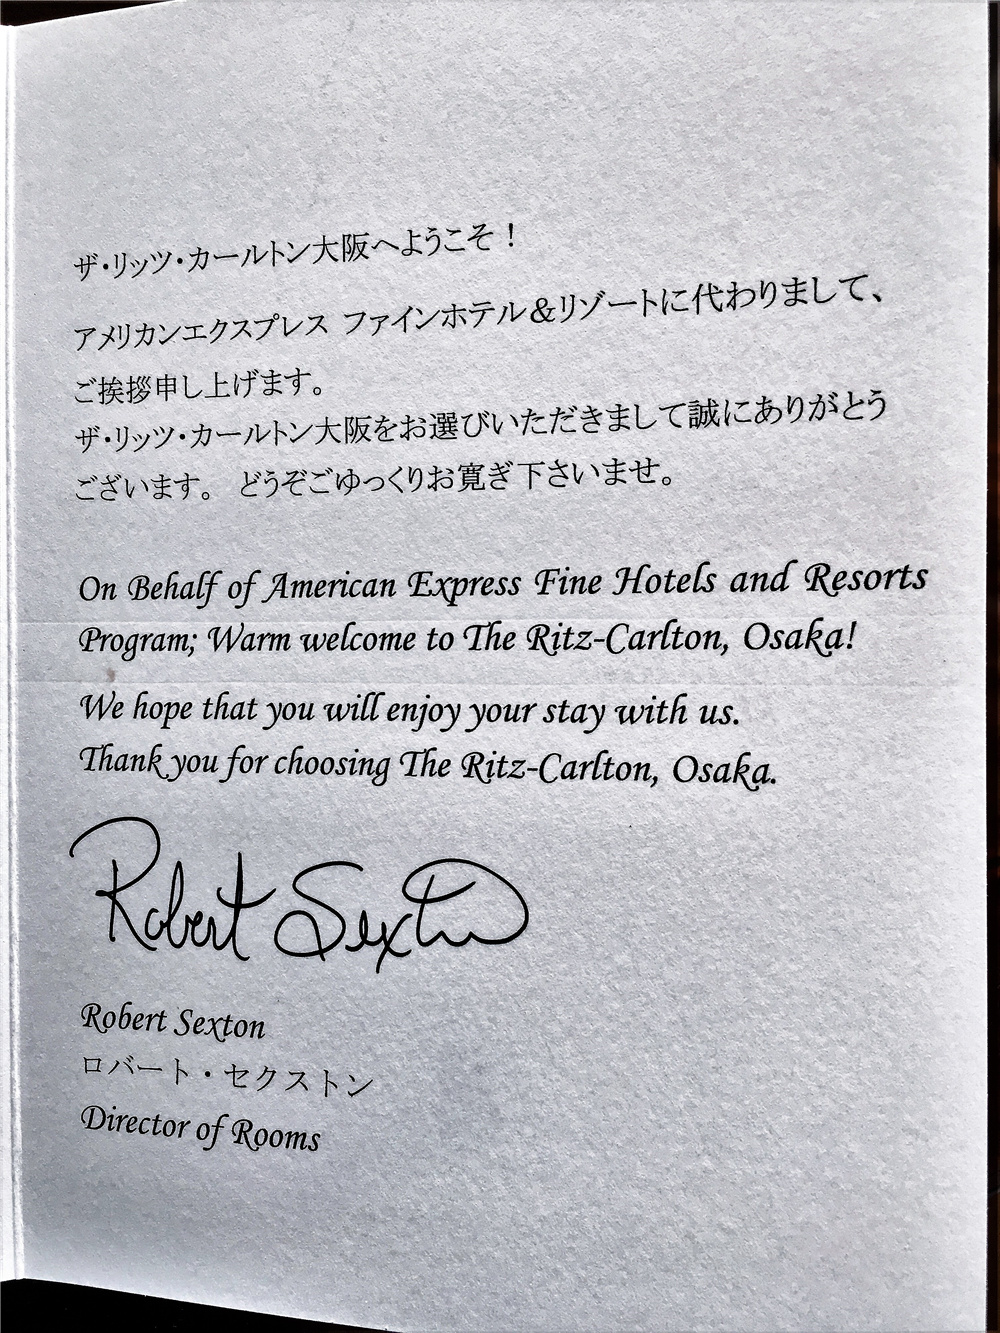 ザ・リッツ・カールトン大阪へようこそ！
アメリカンエクスプレス ファインホテル＆リゾートに代わりまして、
ご挨拶申し上げます。
ザ・リッツ・カールトン大阪をお選びいただきまして誠にありがとう
ございます。 どうぞごゆっくりお寛ぎ下さいませ。
On Behalf of American Express Fine Hotels and Resorts
Program; Warm welcome to The Ritz-Carlton, Osaka!
We hope that you will enjoy your stay with us.
Thank you for choosing The Ritz-Carlton, Osaka.
Robert Sexton
Robert Sexton
ロバート・セクストン
Director of Rooms